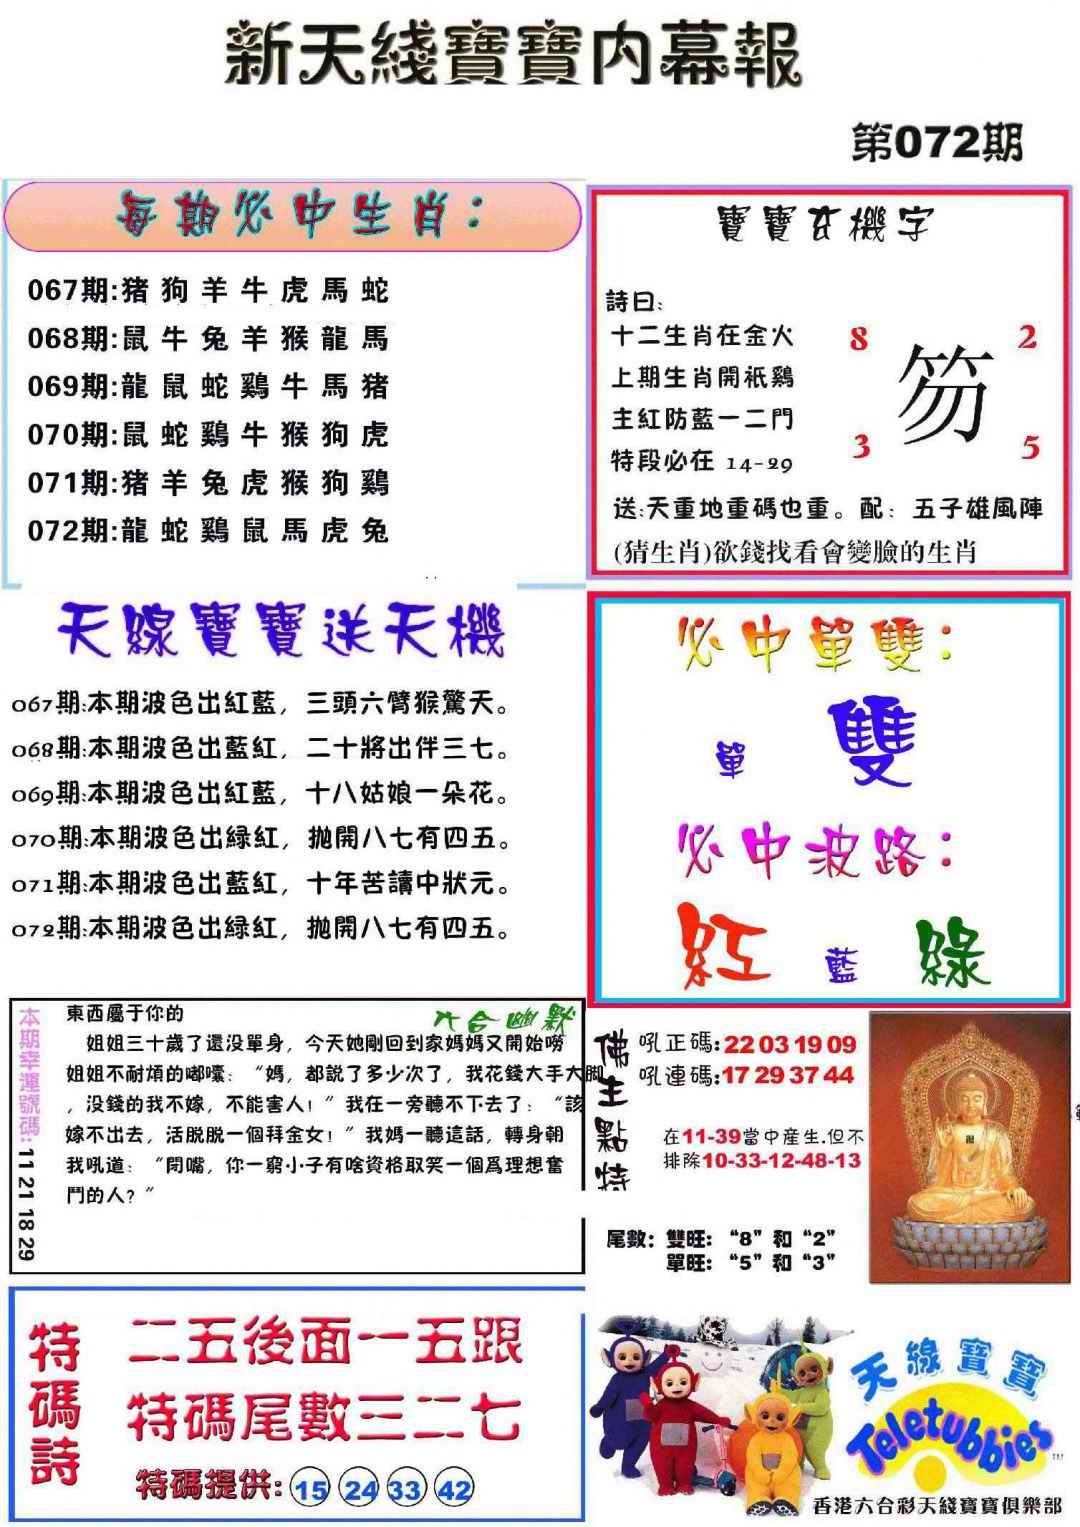 新天綫寶寶內幕報
第072期
每期必中生肖：
067期:猪狗羊牛虎馬蛇
068期:鼠牛兔羊猴龍馬
069期:龍鼠蛇鷄牛馬猪
070期:鼠蛇鷄牛猴狗虎
071期:猪羊兔虎猴狗鷄
072期:龍蛇鷄鼠馬虎兔
寶寶玄機字
詩曰:
十二生肖在金火
上期生肖開祇鷄
主紅防藍一二門
特段必在 14-29
8 2
笏
3 5
送:天重地重碼也重。配：五子雄風陣
(猜生肖)欲錢找看會變臉的生肖
天線寶寶送天機
067期:本期波色出紅藍，三頭六臂猴驚天。
068期:本期波色出藍紅，二十將出伴三七。
069期:本期波色出紅藍，十八姑娘一朵花。
070期:本期波色出綠紅，拋開八七有四五。
071期:本期波色出藍紅，十年苦讀中狀元。
072期:本期波色出綠紅，拋開八七有四五。
必中單雙：
單 雙
必中波路：
紅 藍 綠
本期幸運號碼: 11 21 18 29
六合幽默
東西屬于你的
姐姐三十歲了還没單身，今天她剛回到家媽媽又開始嘮
姐姐不耐煩的嘟囔：“媽，都說了多少次了，我花錢大手大脚
，没錢的我不嫁，不能害人！”我在一旁聽不下去了：“該
嫁不出去，活脱脱一個拜金女！”我媽一聽這話，轉身朝
我吼道：“閉嘴，你一窮小子有啥資格取笑一個爲理想奮
鬥的人？”
佛主點特
吼正碼:22 03 19 09
吼連碼:17 29 37 44
在11-39當中産生.但不
排除10-33-12-48-13
尾數：雙旺：“8”和“2”
單旺：“5”和“3”
特碼詩
二五後面一五跟
特碼尾數三二七
特碼提供: 15 24 33 42
天線寶寶
Teletubbies
TM
香港六合彩天綫寶寶俱樂部